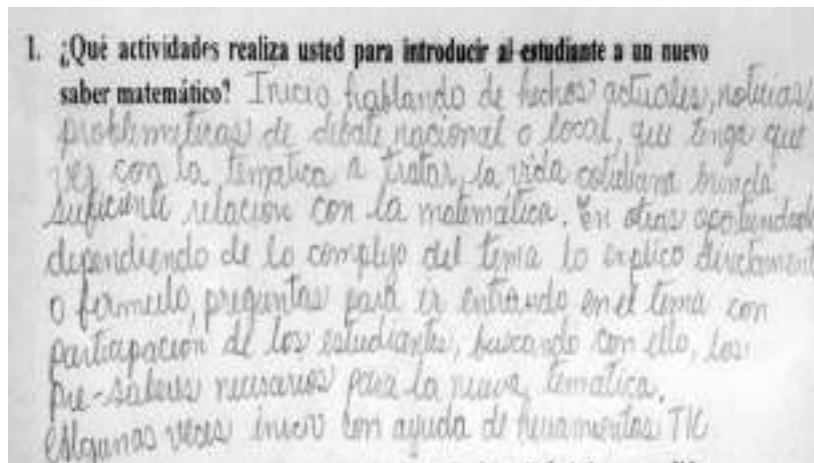 1. ¿Qué actividades realiza usted para introducir al estudiante a un nuevo
saber matemático? Inicio hablando de hechos actuales, noticias,
problematicas de debate nacional o local, que tenga que
ver con la tematica a tratar, la vida cotidiana brinda
suficiente relacion con la matemática. En otras oportunidad
dependiendo de lo complejo del tema lo explico directament
o formulo, preguntas para ir entrando en el tema con
participacion de los estudiantes, buscando con ello, los
pre-saberes necesarios para la nueva tematica.
Algunas veces inicio con ayuda de herramientas TIC